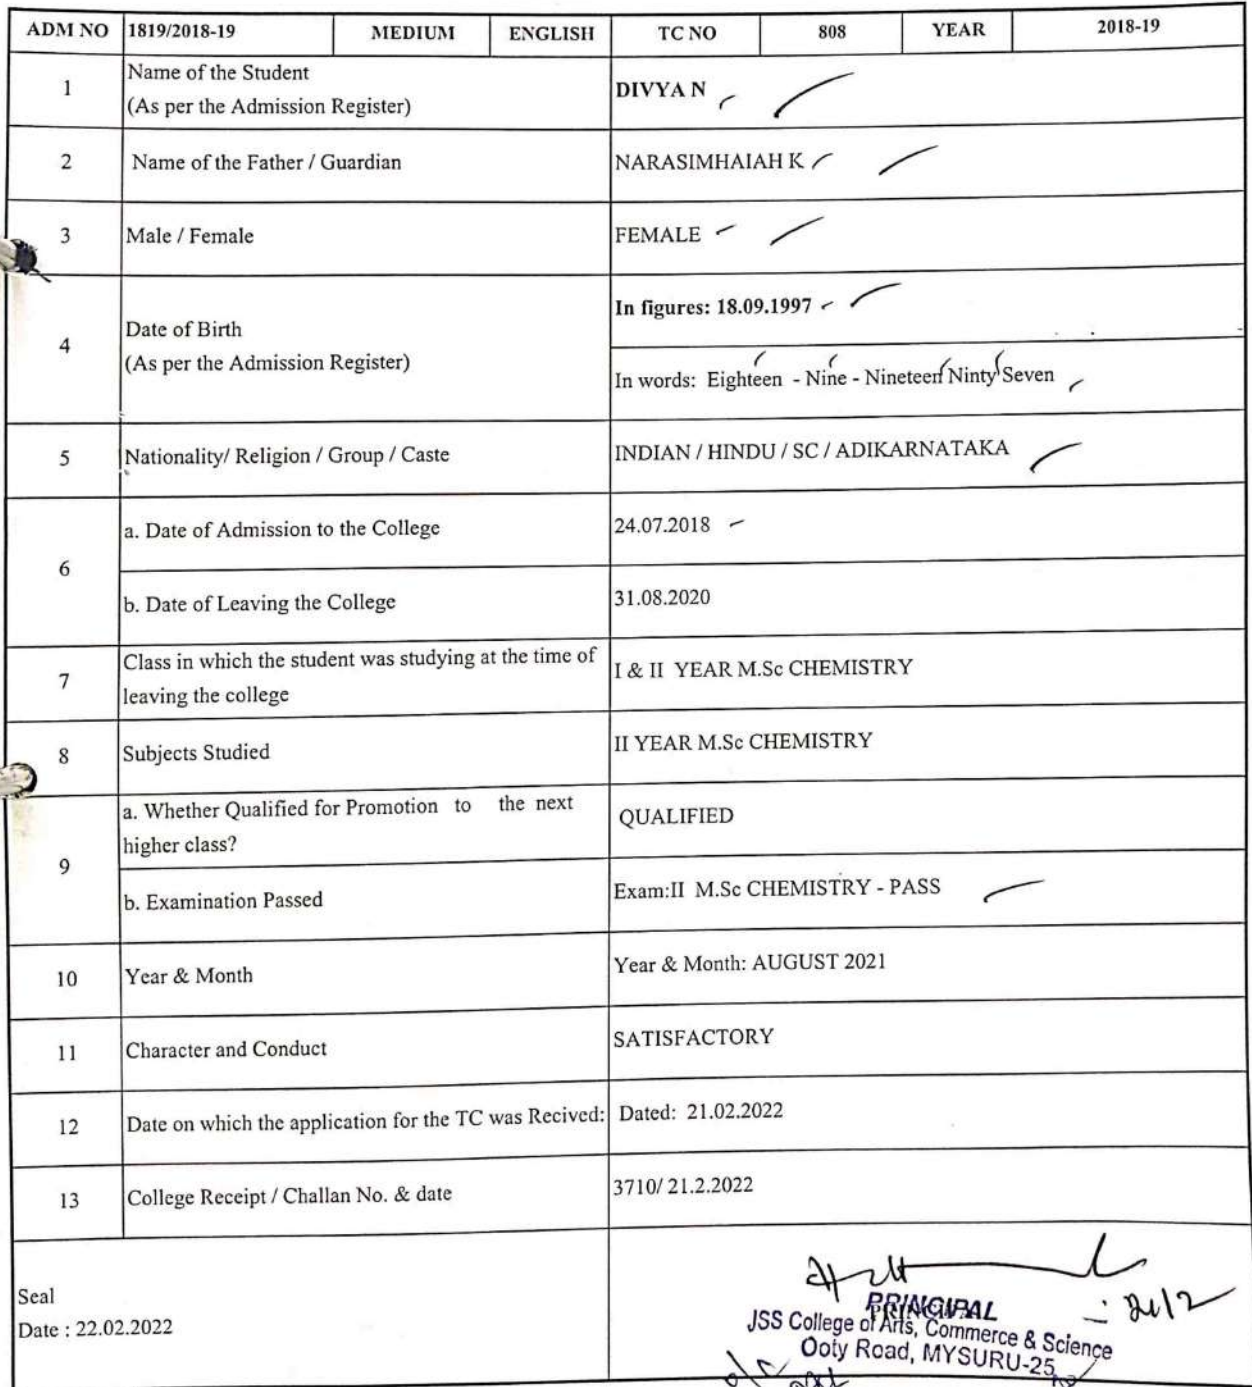 ADM NO 1819/2018-19 MEDIUM ENGLISH TC NO 808 YEAR 2018-19
1 Name of the Student
(As per the Admission Register) DIVYA N
2 Name of the Father / Guardian NARASIMHAIAH K
3 Male / Female FEMALE
4 Date of Birth
(As per the Admission Register)
In figures: 18.09.1997
In words: Eighteen - Nine - Nineteen Ninty Seven
5 Nationality/ Religion / Group / Caste INDIAN / HINDU / SC / ADIKARNATAKA
6 a. Date of Admission to the College 24.07.2018
b. Date of Leaving the College 31.08.2020
7 Class in which the student was studying at the time of
leaving the college I & II YEAR M.Sc CHEMISTRY
8 Subjects Studied II YEAR M.Sc CHEMISTRY
9 a. Whether Qualified for Promotion to the next
higher class? QUALIFIED
b. Examination Passed Exam:II M.Sc CHEMISTRY - PASS
10 Year & Month Year & Month: AUGUST 2021
11 Character and Conduct SATISFACTORY
12 Date on which the application for the TC was Recived: Dated: 21.02.2022
13 College Receipt / Challan No. & date 3710/ 21.2.2022
Seal
Date : 22.02.2022
PRINCIPAL
PRINCIPAL
JSS College of Arts, Commerce & Science
Ooty Road, MYSURU-25